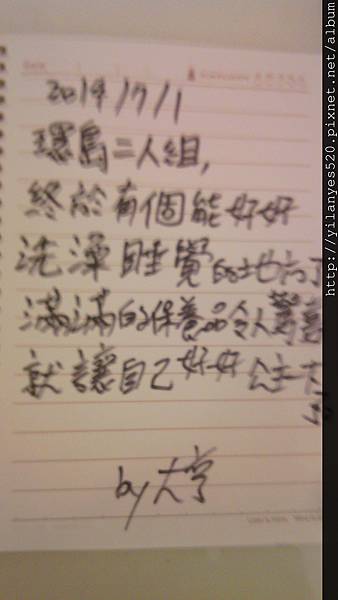 2014/7/1
環島二人組,
終於有個能好好
洗澡睡覺的地方了
滿滿的保養品令人驚喜
就讓自己好好公主一下
by 大亨
http://yilanyes520.pixnet.net/album